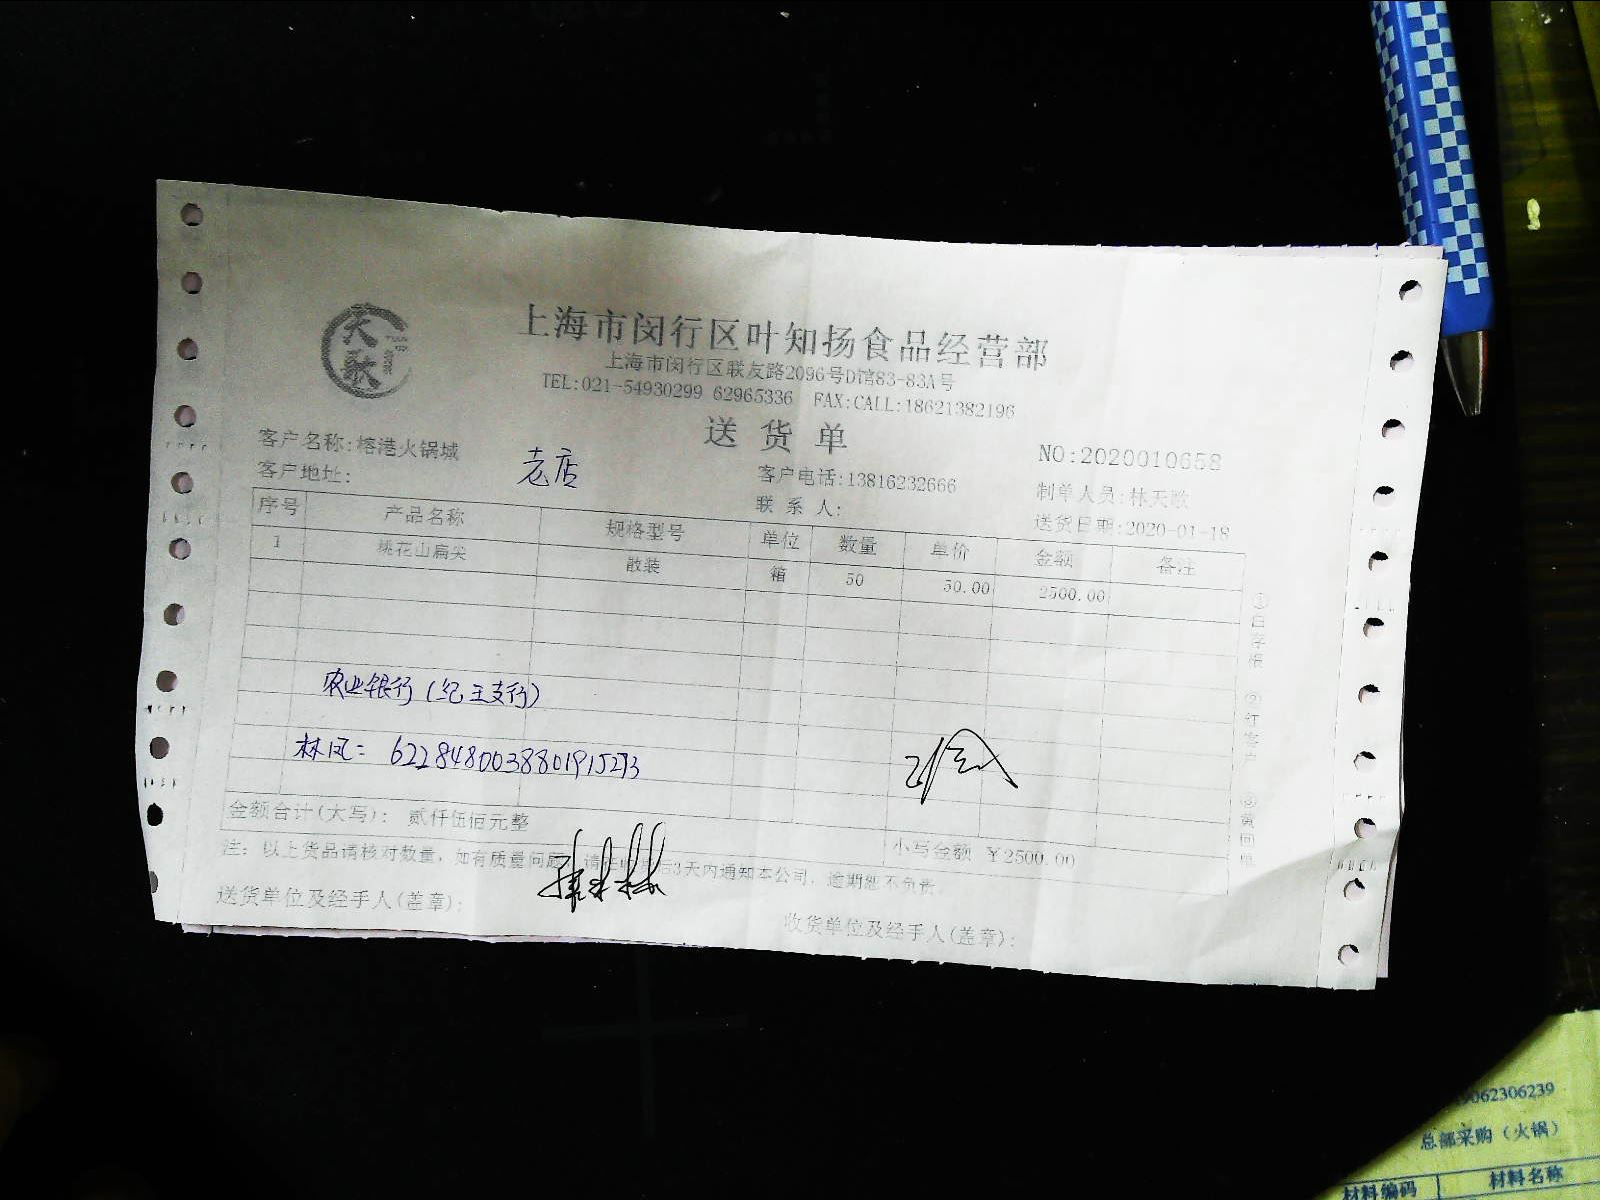 天歌
上海市闵行区叶知扬食品经营部
上海市闵行区联友路2096号D馆83-83A号
TEL:021-54930299 62965336 FAX:CALL:18621382196
送货单
NO:2020010658
客户名称:榕港火锅城
老店
客户电话:13816232666
制单人员:林天歌
客户地址:
联系人:
送货日期:2020-01-18
序号 产品名称 规格型号 单位 数量 单价 金额 备注
1 桃花山扁尖 散装 箱 50 50.00 2500.00
农业银行(纪王支行)
林凤: 6228480038801915273
金额合计(大写): 贰仟伍佰元整
小写金额 ¥2500.00
注: 以上货品请核对数量, 如有质量问题, 请在收货后3天内通知本公司, 逾期恕不负责.
送货单位及经手人(盖章):
收货单位及经手人(盖章):
①白存根 ②红客户 ③黄回单
062306239
总部采购(火锅)
材料编码 材料名称